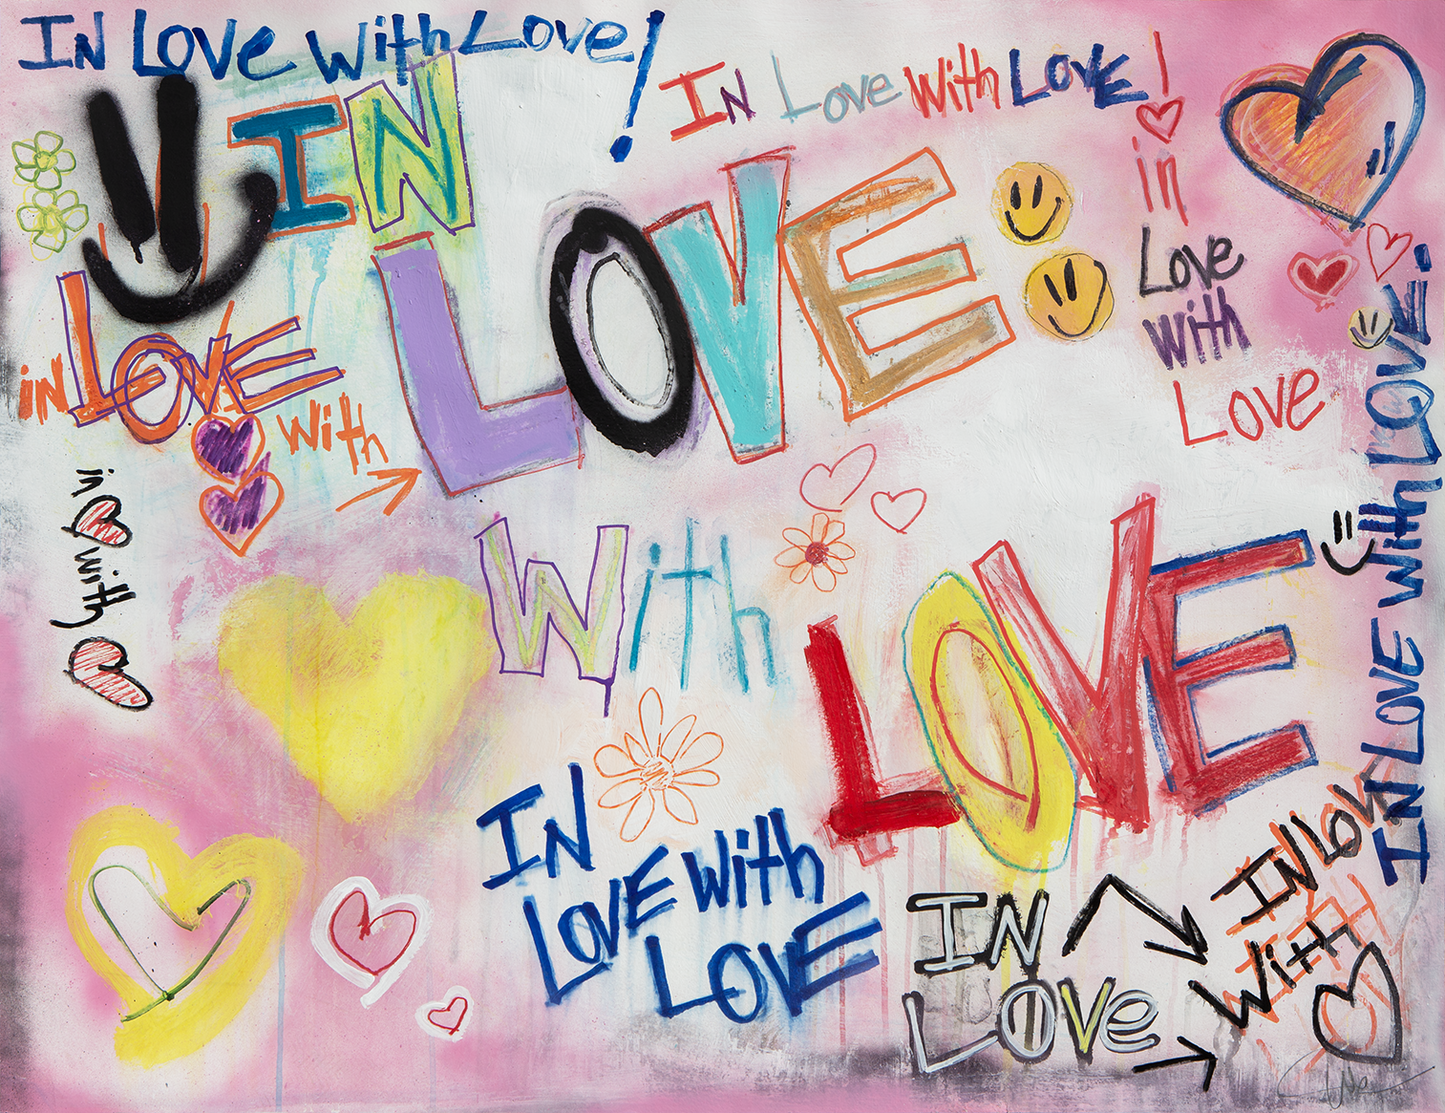 IN LOVE With LOVE!
IN Love With LOVE!
in
Love
With
Love
IN
LOVE
With
LOVE
in LOVE
With
in
with
IN LOVE With LOVE.
IN
LOVE With
LOVE
IN
LOVe
IN LOVE
With